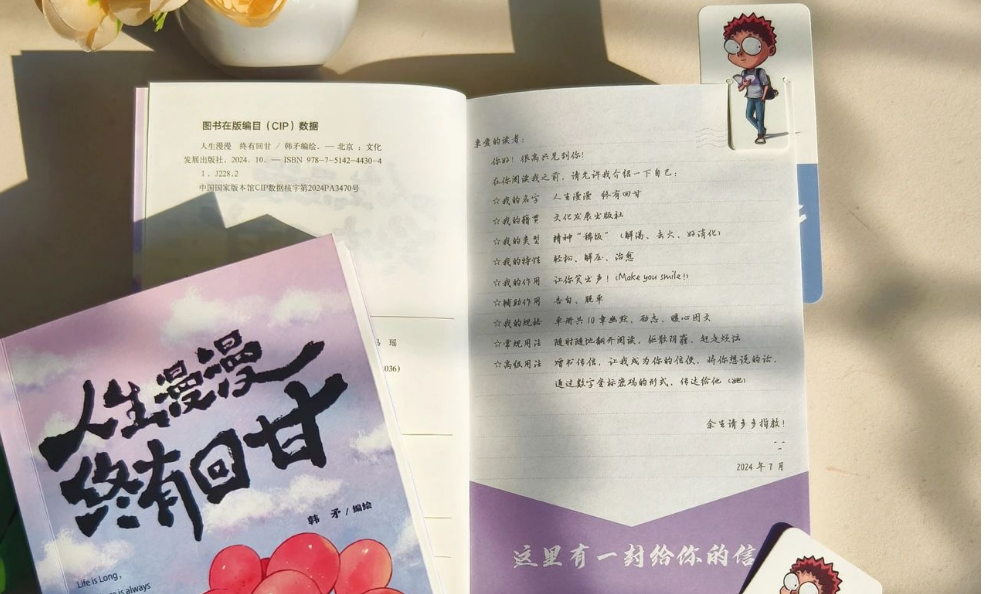 图书在版编目（CIP）数据
人生漫漫 终有回甘 / 韩矛编绘. — 北京 : 文化
发展出版社. 2024. 10. — ISBN 978-7-5142-4430-4
1 . J228.2
中国国家版本馆CIP数据核字第2024PA3470号
瑶
036)
亲爱的读者：
你好！很高兴见到你！
在你阅读我之前，请允许我介绍一下自己：
☆我的名字 人生漫漫 终有回甘
☆我的籍贯 文化发展出版社
☆我的类型 精神“稀饭”（解渴、去火、好消化）
☆我的特性 轻松、解压、治愈
☆我的作用 让你笑出声！(Make you smile!)
☆辅助作用 告白、脱单
☆我的规格 单册共10章幽默、励志、暖心图文
☆常规用法 随时随地翻开阅读，驱散阴霾，赶走烦恼
☆高级用法 赠书传信，让我成为你的信使，将你想说的话，
通过数字坐标密码的形式，传达给他（她）
余生请多多指教！
2024 年 7 月
这里有一封给你的信
人生漫漫
终有回甘
韩 矛 / 编绘
Life is Long,
is always